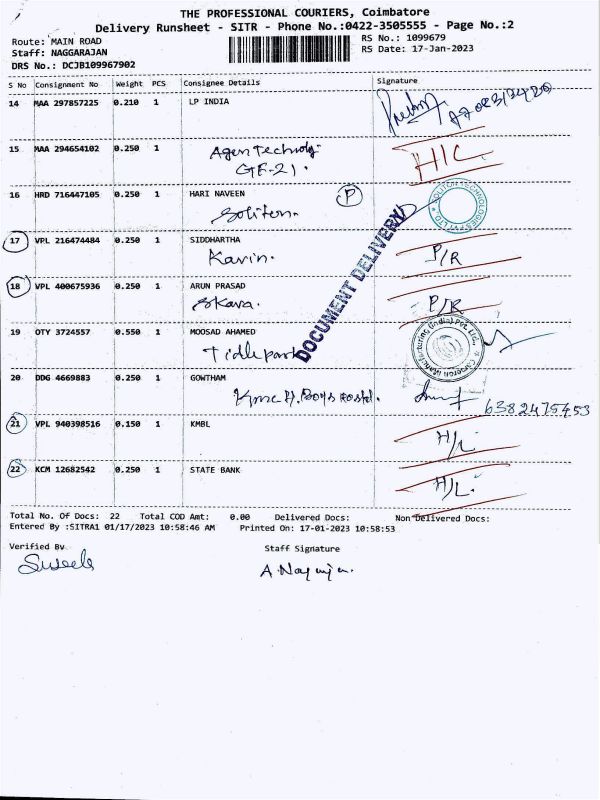 THE PROFESSIONAL COURIERS, Coimbatore
Delivery Runsheet - SITR - Phone No.:0422-3505555 - Page No.:2
Route: MAIN ROAD
Staff: NAGGARAJAN
DRS No.: DCJB109967902
RS No.: 1099679
RS Date: 17-Jan-2023
S No Consignment No Weight PCS Consignee Details Signature
14 MAA 297857225 0.210 1 LP INDIA
15 MAA 294654102 0.250 1
Agen Technology H/C
GF-21.
16 HRD 716447105 0.250 1 HARI NAVEEN P
Soliton. SOLITON TECHNOLOGIES PVT LTD.
17 VPL 216474484 0.250 1 SIDDHARTHA
Kavin. P/R
18 VPL 400675936 0.250 1 ARUN PRASAD
Skava. P/R
DOCUMENT DELIVERY
19 OTY 3724557 0.550 1 MOOSAD AHAMED
Tidlepark Cameron Manufacturing (India) Pvt. Ltd.
20 DDG 4669883 0.250 1 GOWTHAM
6382475453
21 VPL 940398516 0.150 1 KMBL
H/L
22 KCM 12682542 0.250 1 STATE BANK
H/L
Total No. Of Docs: 22 Total COD Amt: 0.00 Delivered Docs: Non Delivered Docs:
Entered By :SITRA1 01/17/2023 10:58:46 AM Printed On: 17-01-2023 10:58:53
Verified By Staff Signature
Suseela